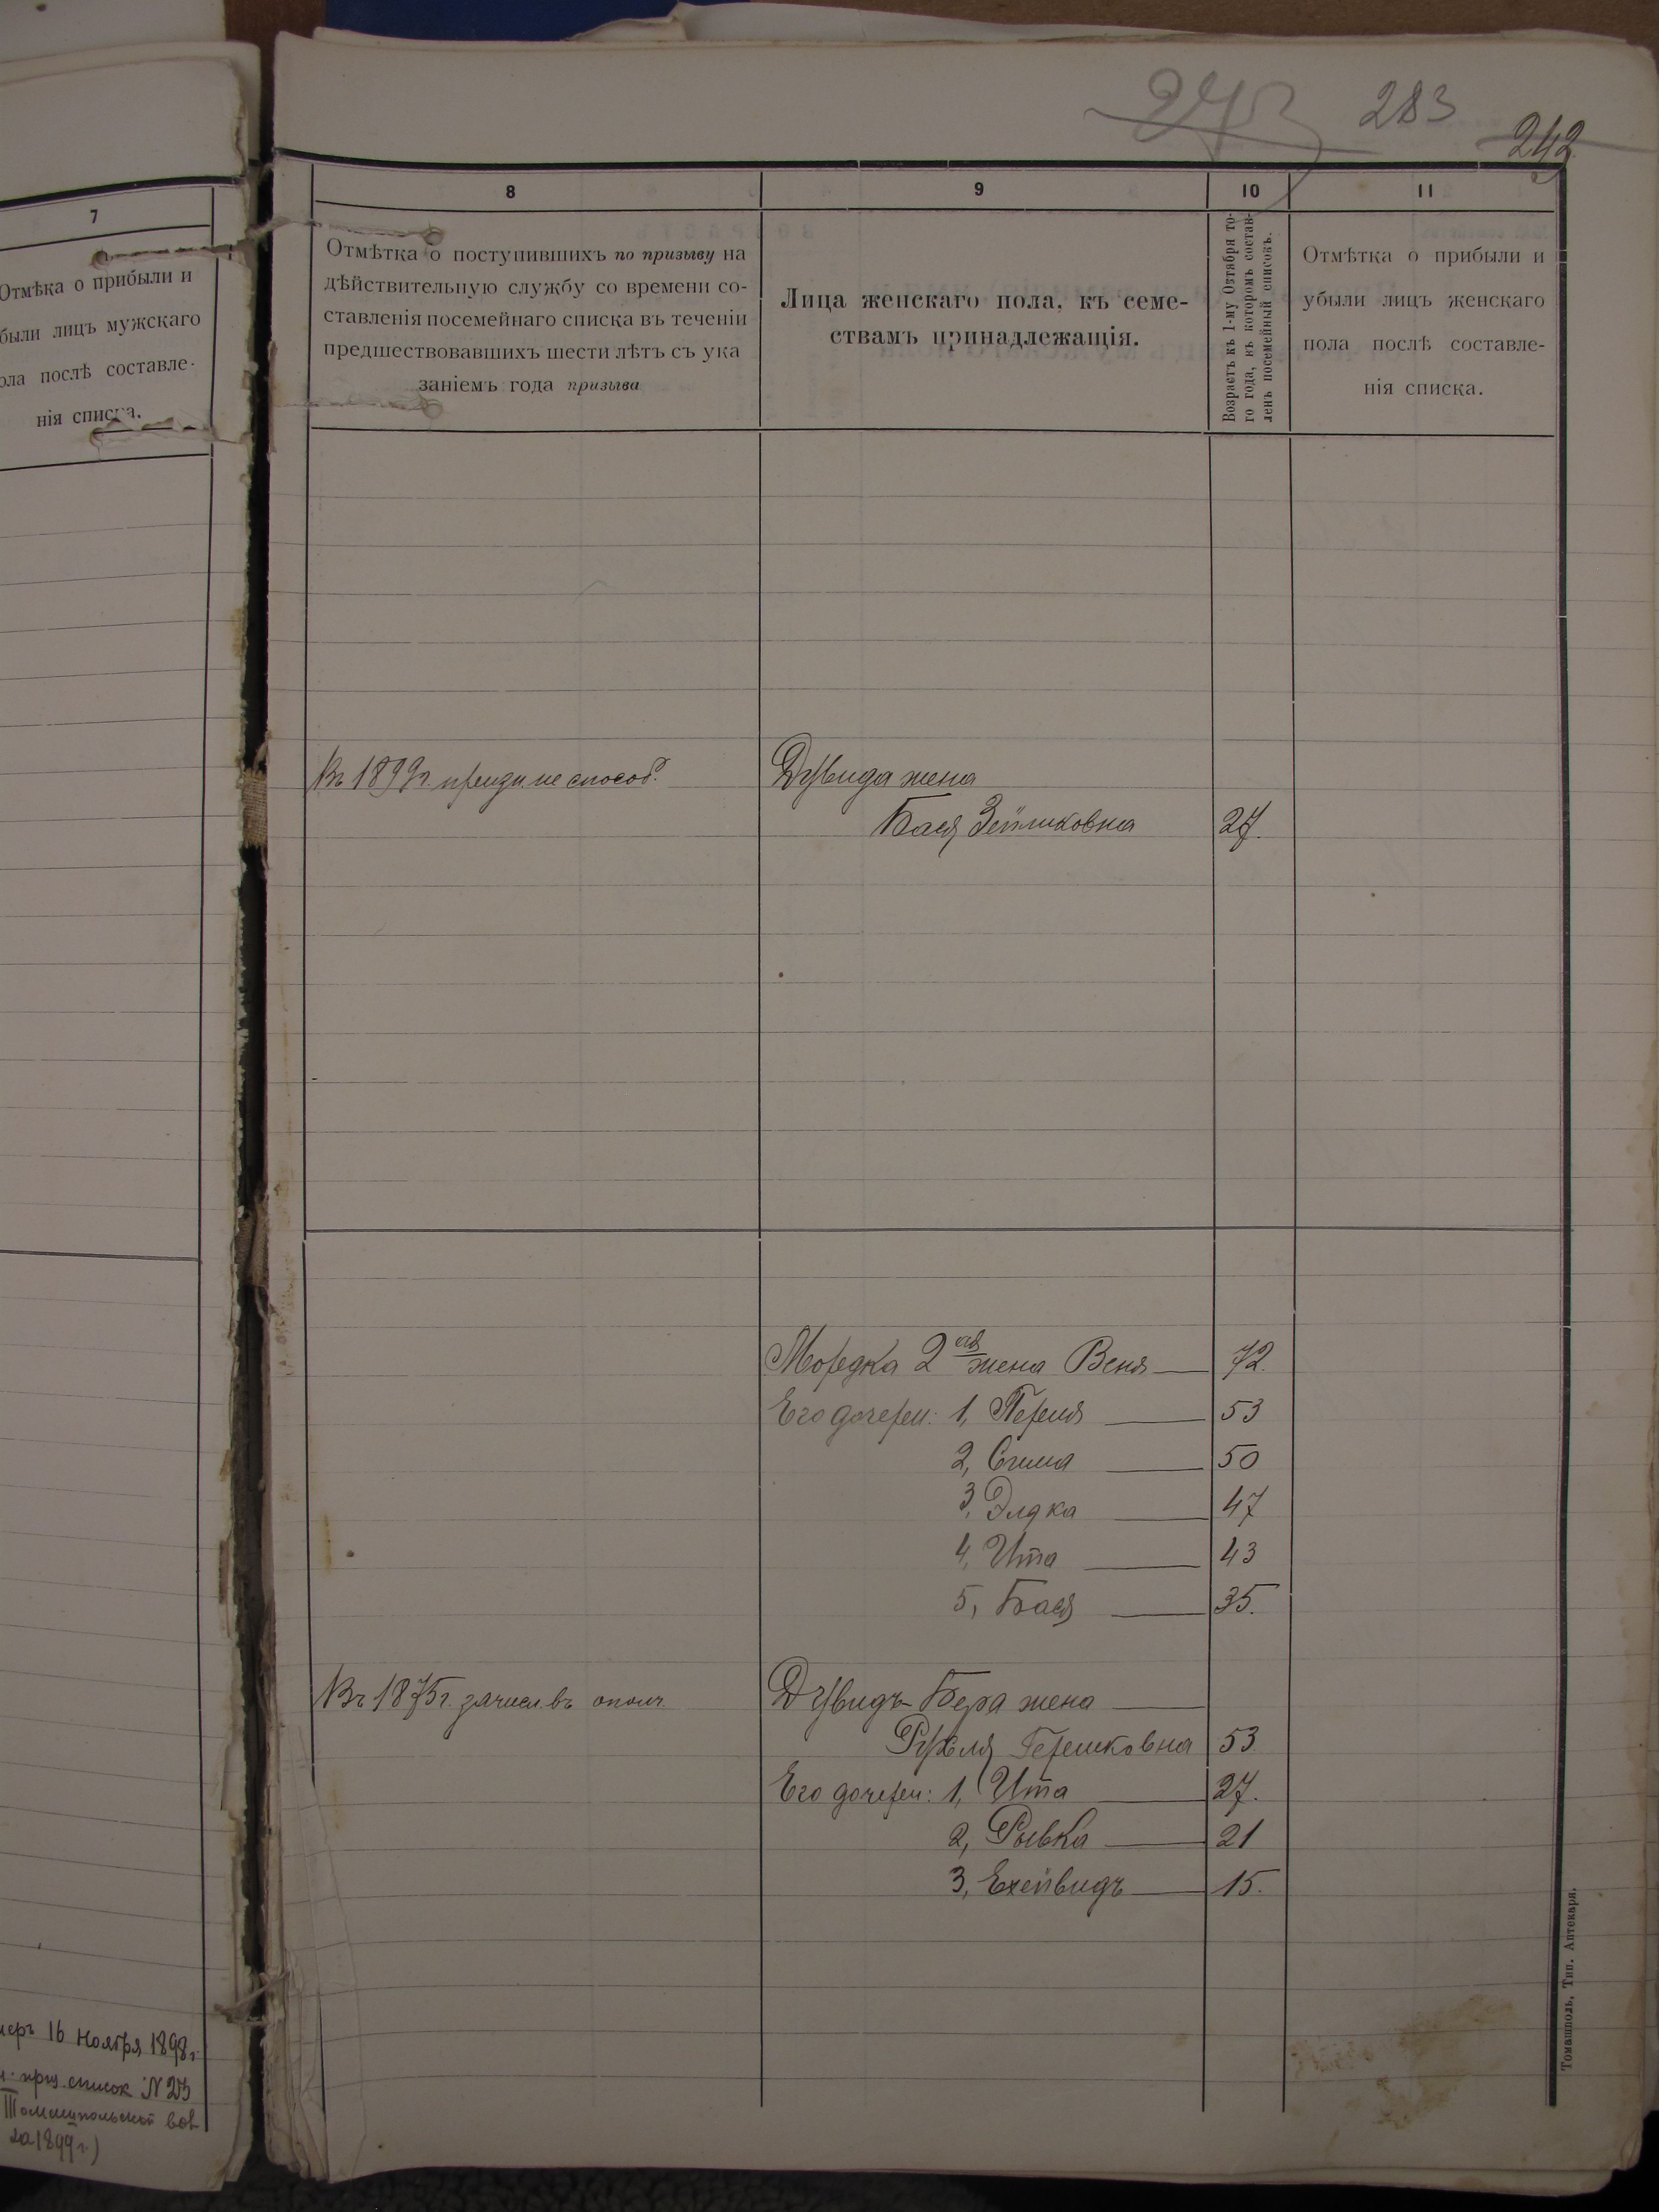 7
Отмѣка о прибыли и
были лицъ мужскаго
ола послѣ составле-
нія списка.
меръ 16 Ноября 1898 г.
приз. список №273
Томашпольской вол
за 1899 г.)
273 283 242
8
Отмѣтка о поступившихъ по призыву на
дѣйствительную службу со времени со-
ставленія посемейнаго списка въ теченіи
предшествовавшихъ шести лѣтъ съ ука
заніемъ года призыва
9
Лица женскаго пола, къ семе-
ствамъ принадлежащія.
10
Возрастъ къ 1-му Октября то-
го года, въ которомъ состав-
ленъ посемейный списокъ.
11
Отмѣтка о прибыли и
убыли лицъ женскаго
пола послѣ составле-
нія списка.
Въ 1899 г. призн. не способ. Дувида жена
Бася Зейликовна 27.
Мордка 2 ая жена Веня 72.
Его дочери: 1, Перля 53
2, Сима 50
3, Элдка 47
4, Ита 43
5, Бася 35.
Въ 1875 г. зачисл. въ ополч. Дувидъ-Бера жена
Рухля Гершковна 53
Его дочери: 1, Ита 27.
2, Рывка 21
3, Ехейвидъ 15.
Томашполь, Тип. Аптекаря.